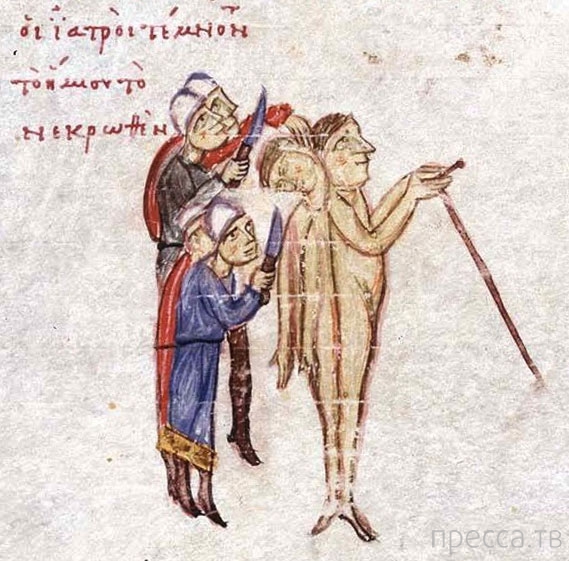 ὁι ἰατρὸι τέμνον
τὸ ἥμισυ τὸ
νεκρωθὲν
пресса.тв